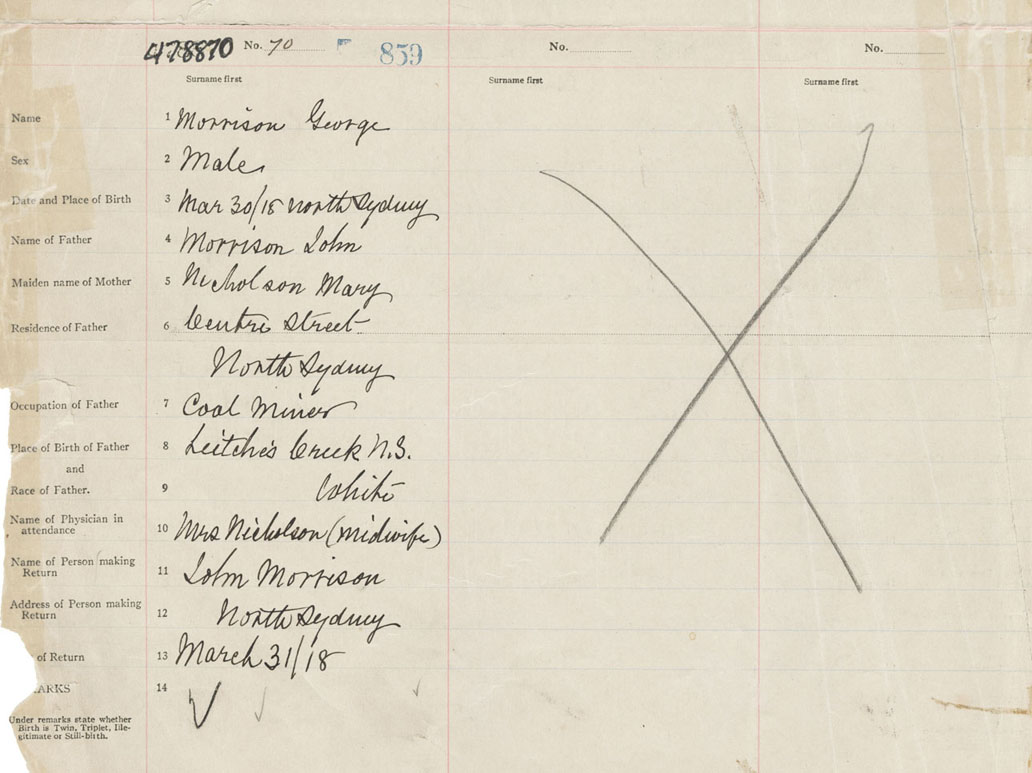 478870 No. 70 859 No. No.
Surname first Surname first Surname first
Name 1 Morrison George
Sex 2 Male
Date and Place of Birth 3 Mar 30/18 North Sydney
Name of Father 4 Morrison John
Maiden name of Mother 5 Nicholson Mary
Residence of Father 6 Centre Street
North Sydney
Occupation of Father 7 Coal Miner
Place of Birth of Father 8 Leitche's Creek N.S.
and
Race of Father. 9 White
Name of Physician in
attendance 10 Mrs Nicholson (midwife)
Name of Person making
Return 11 John Morrison
Address of Person making
Return 12 North Sydney
of Return 13 March 31/18
ARKS 14
Under remarks state whether
Birth is Twin, Triplet, Ille-
gitimate or Still-birth.